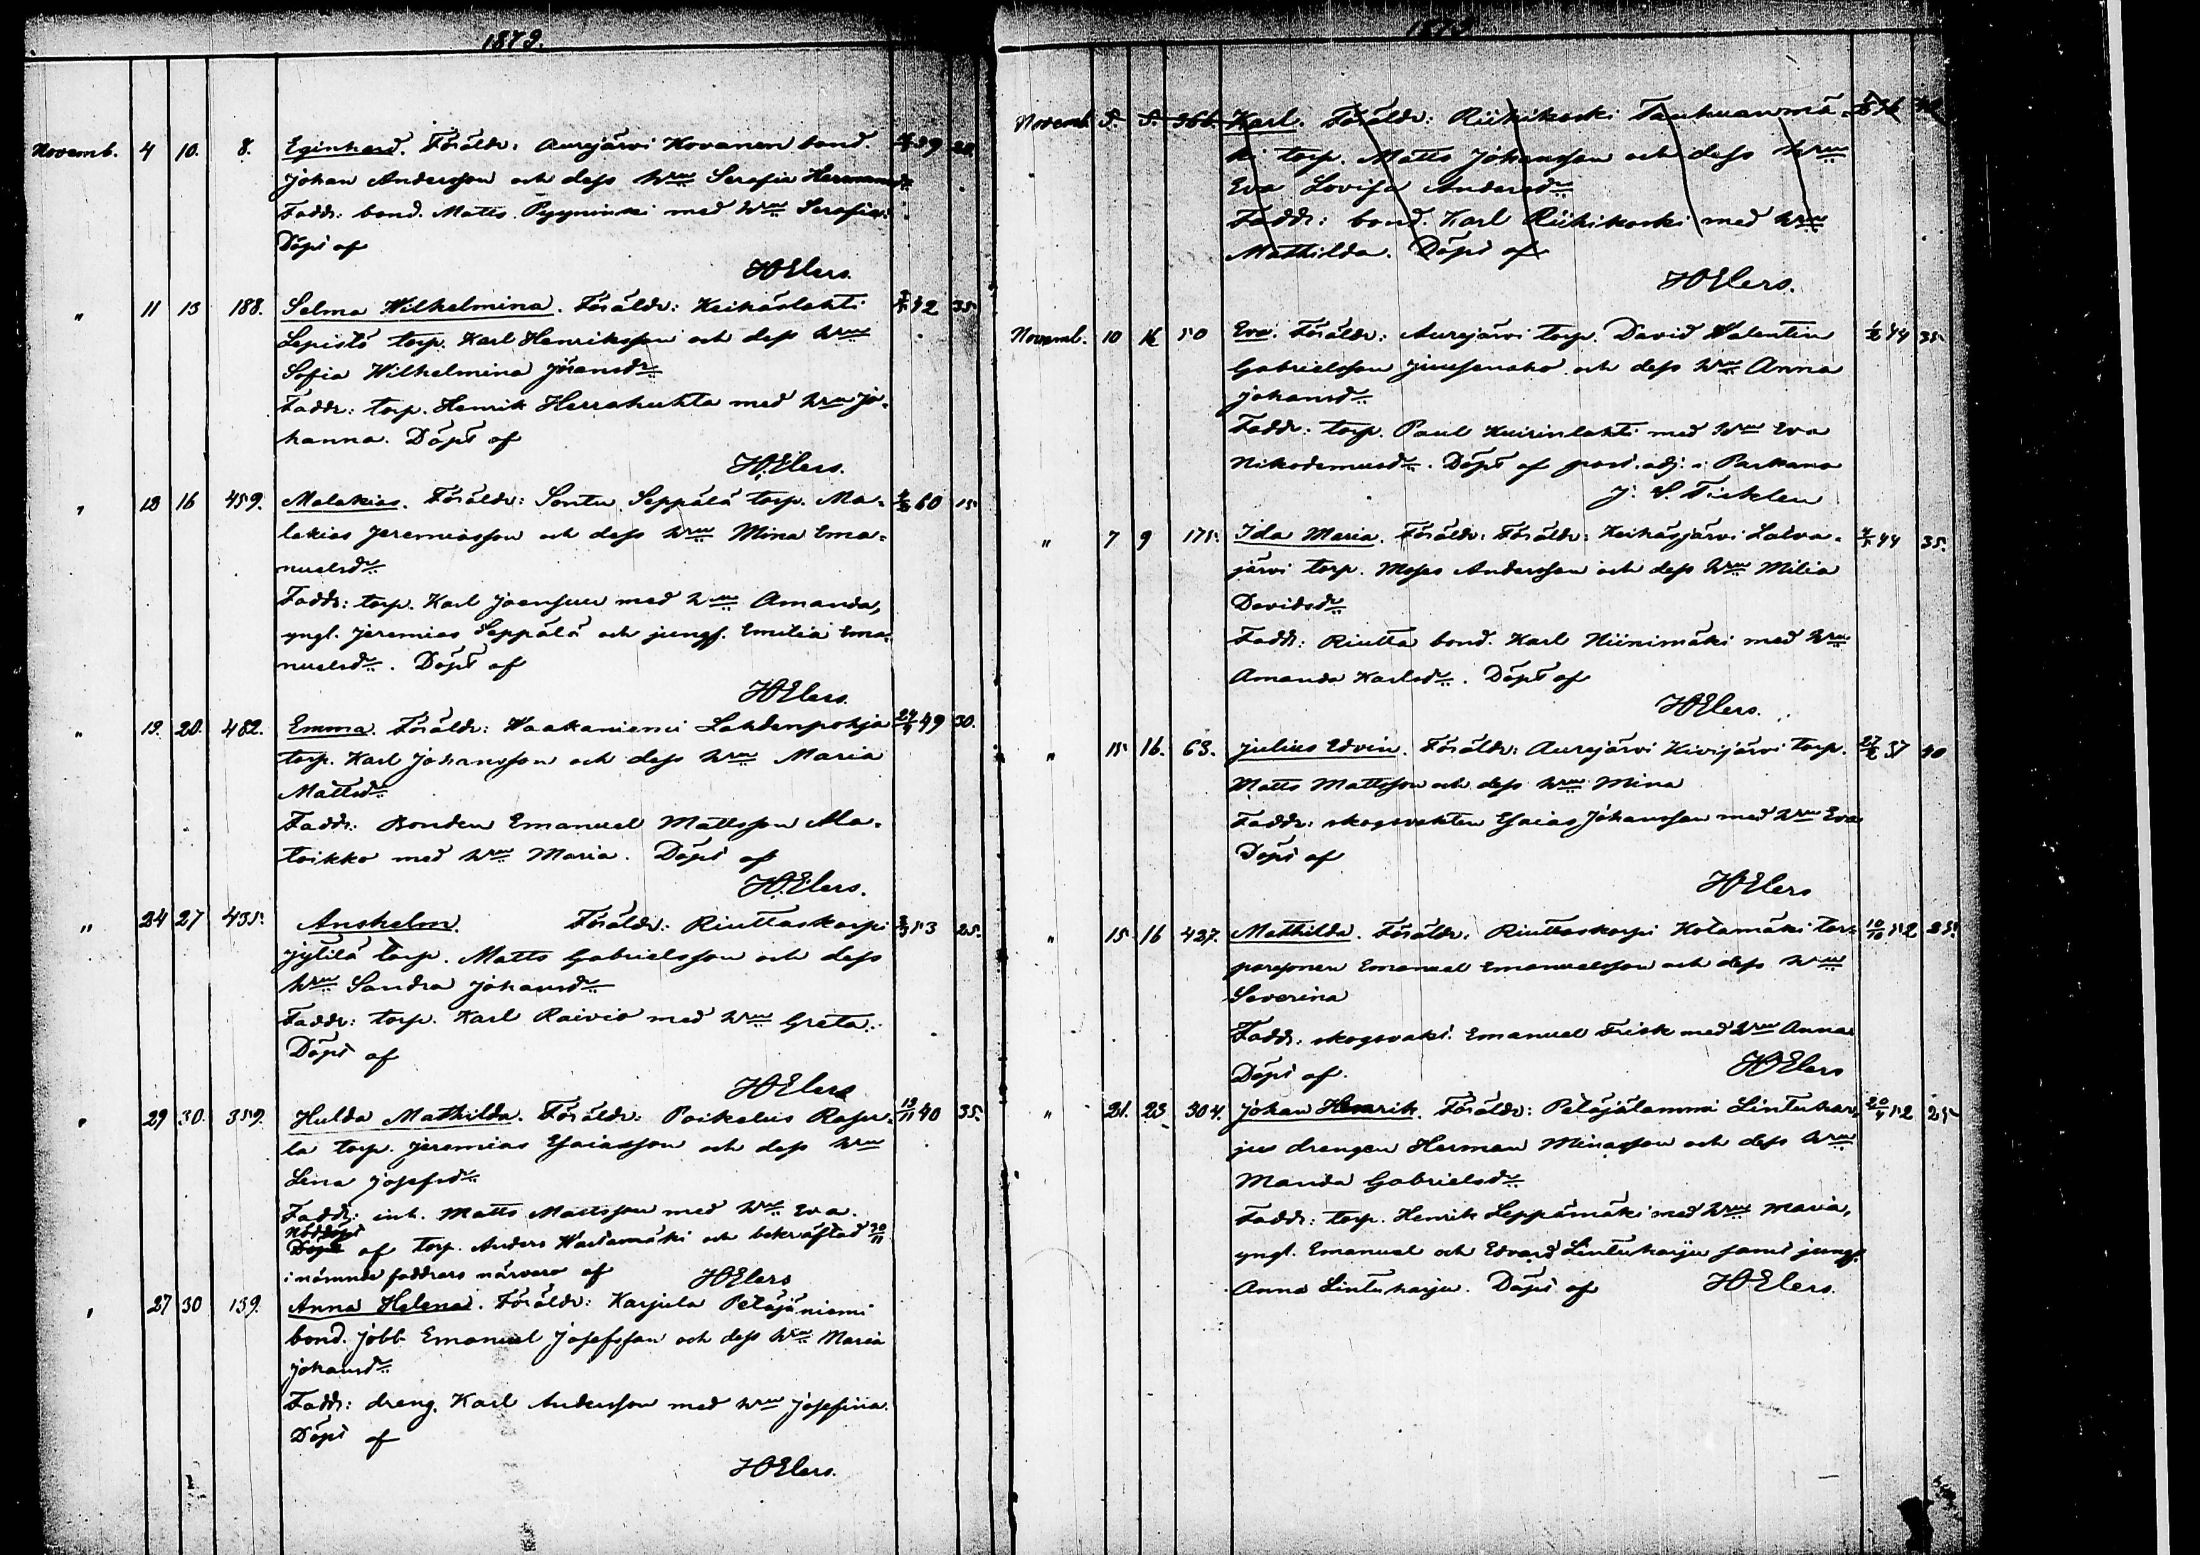 1879.
Novemb. 4 10. 8. Eginhard. Föräldr: Aurejärvi Kovanen bond. 39
Johan Andersson och dess hru Serafia Hermansdr
Faddr: bond. Matts Pyyninki med hru Serafia.
Döpt af
HElers.
" 11 13 188. Selma Wilhelmina. Föräldr: Keihäslahti 42 35.
Lepistö torp. Karl Henriksson och dess hru
Sofia Wilhelmina Jöransdr
Faddr: torp. Henrik Herrakuhta med hru Jo-
hanna. Döpt af
H.Elers.
" 13 16 459. Malakias. Föräldr: Sontu Seppälä torp. Ma- 60 15
lakias Jeremiasson och dess hru Mina Ema-
nuelsdr
Faddr: torp. Karl Joensuu med hru Amanda,
yngl. Jeremias Seppälä och jungf. Emilia Ema-
nuelsdr. Döpt af
HElers.
" 19. 20. 482. Emma. Föräldr: Waakaniemi Lahdenpohja 49 30.
torp. Karl Johansson och dess hru Maria
Mattsdr
Faddr: Bonden Emanuel Mattsson Ala-
toikko med hru Maria. Döpt af
H.Elers.
" 24 27 435. Anshelm. Föräldr: Riuttaskorpi 53 25.
Jytilä torp. Matts Gabrielsson och dess
hru Sandra Johansdr
Faddr: torp. Karl Raivio med hru Greta.
Döpt af
HElers
" 29 30. 359. Hulda Mathilda. Föräldr: Poikelus 13/11 40 35.
la torp. Jeremias Esaiasson och dess hru
Lena Josefsdr
Faddr: inh. Matts Mattsson med hru Eva.
Nöddöpt
Döpt af torp. Anders Wastamäki och bekräftad 30/11
i nämnde faddrars närvaro af HElers
" 27 30 139. Anna Helena. Föräldr: Karjula Petäjäniemi
bond. jobb Emanuel Josefsson och dess hru Maria
Johansdr
Faddr: dreng. Karl Andersson med hru Josefina.
Döpt af
HElers.
1879
Novemb. 5. 5. 366. Karl. Föräldr: Riihikoski Tauhuanmä-
ki torp. Matts Johansson och dess hru
Eva Lovisa Andersdr
Faddr: bond. Karl Riihikoski med hru
Mathilda. Döpt af
HElers.
Novemb. 10 16 50 Eva. Föräldr: Aurejärvi torp. David Walentin 44 35.
Gabrielsson Juusenaho och dess hru Anna
Johansd
Faddr: torp. Paul Kuivinlahti med hru Eva
Nikodemusdr. Döpt af past. adj. i Parkano
J. S. Ticklen
" 7 9 175. Ida Maria. Föräldr: Föräldr: Keihäsjärvi Latva- 44 35.
järvi torp. Moses Andersson och dess hru Milia
Davidsdr
Faddr: Riutta bond. Karl Niinimäki med hru
Amanda Karlsdr. Döpt af
HElers.
" 15 16. 63. Julius Edvin. Föräldr: Aurejärvi Kivijärvi torp. 37 40
Matts Mattsson och dess hru Mina
Faddr: skogsvakten Esaias Johansson med hru Eva
Döpt af
HElers
" 15 16 427. Mathilda. Föräldr: Riuttaskorpi Kotamäki tor- 10/10 52 25.
parsonen Emanuel Emanuelsson och dess hru
Severina
Faddr: skogsvakt. Emanuel Frisk med hru Anna
Döpt af. HElers
" 21. 23 304. Johan Henrik. Föräldr: Petäjälammi Lintuhar- 52 25
ju drengen Herman Minasson och dess hru
Manda Gabrielsdr
Faddr: torp. Henrik Leppämäki med hru Maria,
yngl. Emanuel och Edvard Lintuharju samt jungf.
Anna Lintuharju. Döpt af HElers.